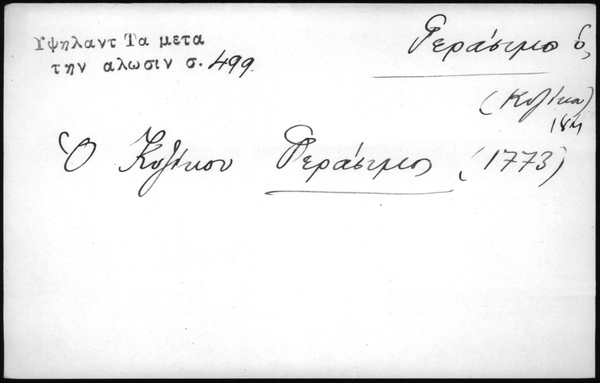 Υψηλαντ Τα μετα
την αλωσιν σ. 499.
Γεράσιμο ὁ,
(Κυζίκου)
18
Ὁ Κυζίκου Γεράσιμος (1773)